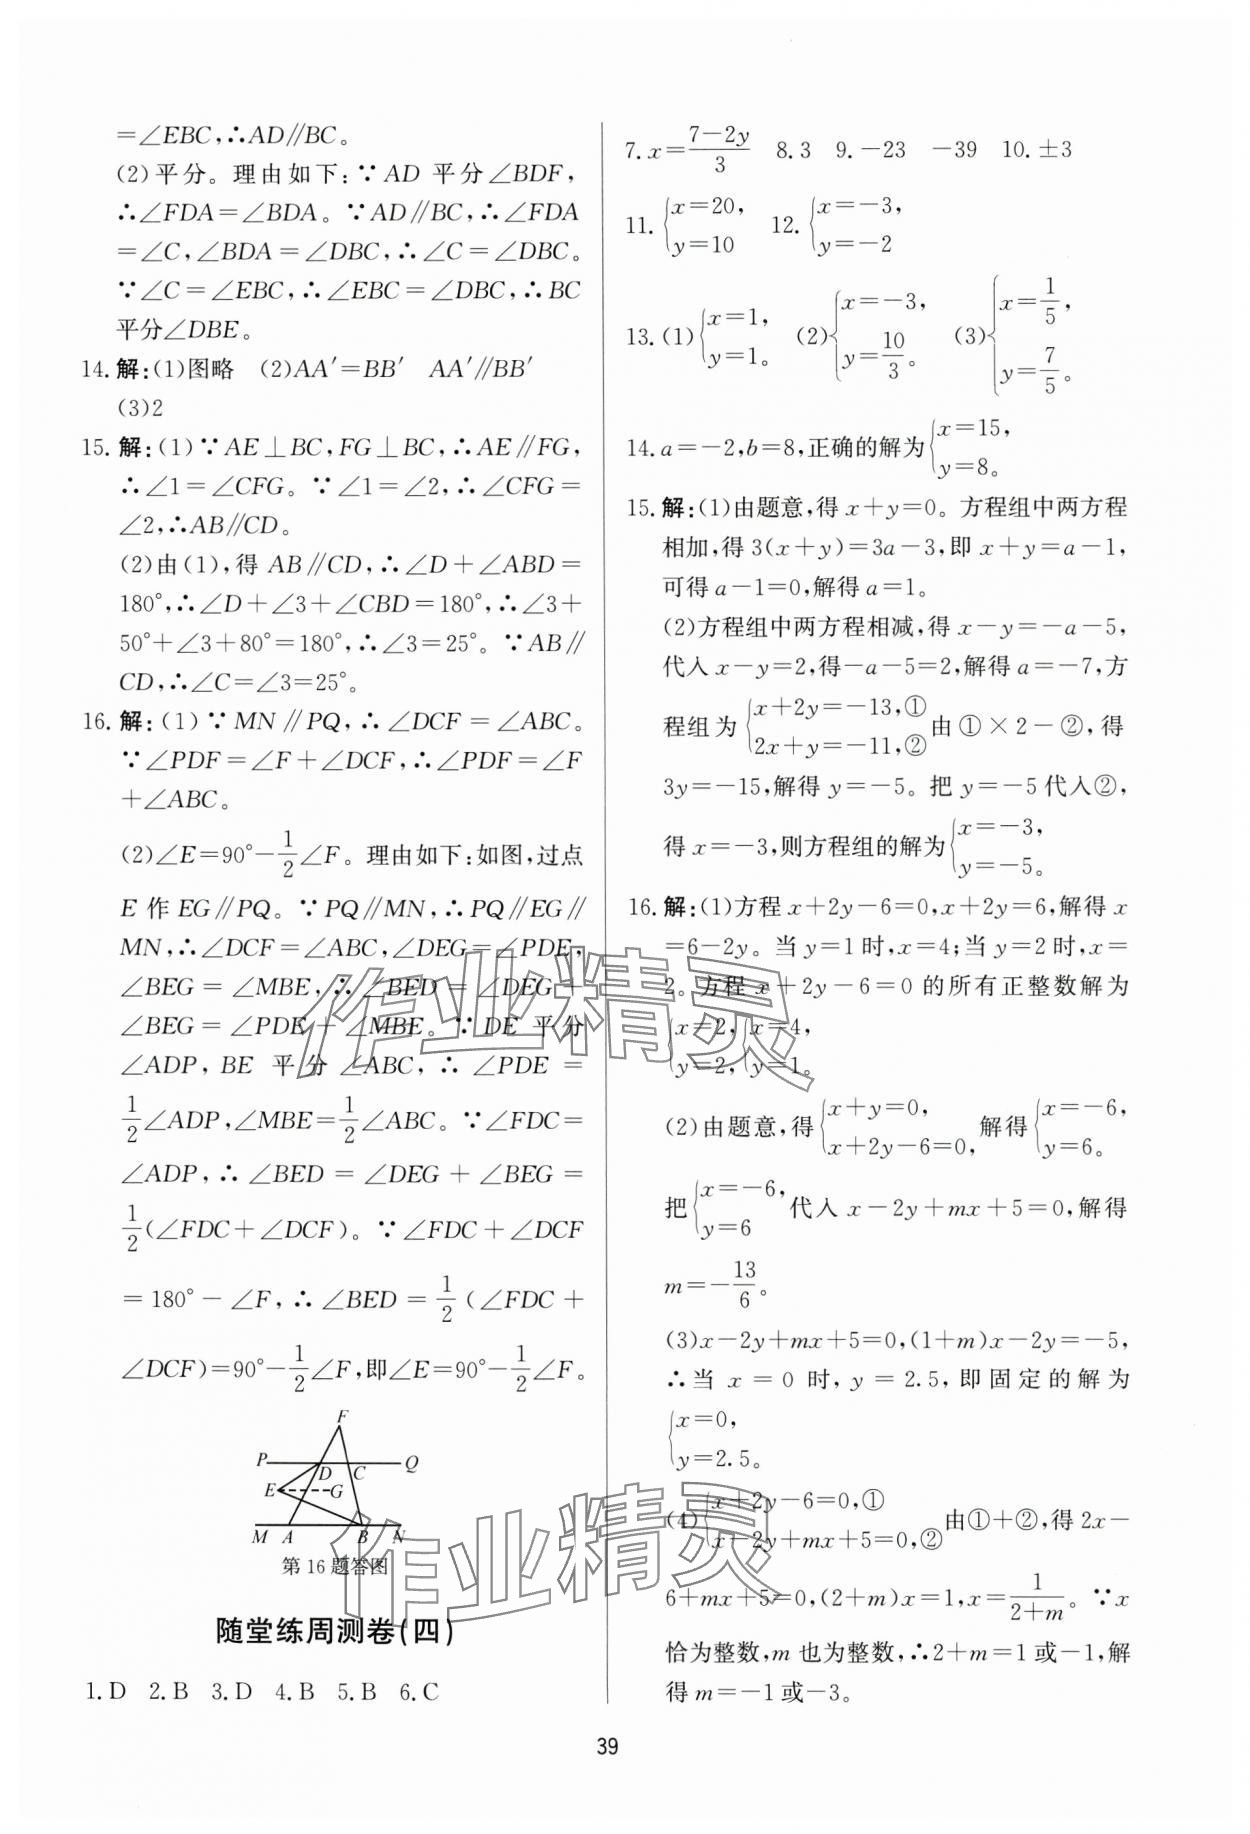 =∠EBC,∴AD∥BC。
(2)平分。理由如下:∵AD 平分∠BDF,
∴∠FDA=∠BDA。∵AD∥BC,∴∠FDA
=∠C,∠BDA=∠DBC,∴∠C=∠DBC。
∵∠C=∠EBC,∴∠EBC=∠DBC,∴BC
平分∠DBE。
14.解:(1)图略 (2)AA′=BB′ AA′∥BB′
(3)2
15.解:(1)∵AE⊥BC,FG⊥BC,∴AE∥FG,
∴∠1=∠CFG。∵∠1=∠2,∴∠CFG=
∠2,∴AB∥CD。
(2)由(1),得 AB∥CD,∴∠D+∠ABD=
180°,∴∠D+∠3+∠CBD=180°,∴∠3+
50°+∠3+80°=180°,∴∠3=25°。∵AB∥
CD,∴∠C=∠3=25°。
16.解:(1)∵MN∥PQ,∴∠DCF=∠ABC。
∵∠PDF=∠F+∠DCF,∴∠PDF=∠F
+∠ABC。
(2)∠E=90°-1/2∠F。理由如下:如图,过点
E 作 EG∥PQ。∵PQ∥MN,∴PQ∥EG∥
MN,∴∠DCF=∠ABC,∠DEG=∠PDE,
∠BEG=∠MBE,∴∠BED=∠DEG+
∠BEG=∠PDE+∠MBE。∵DE 平分
∠ADP,BE 平分∠ABC,∴∠PDE=
1/2∠ADP,∠MBE=1/2∠ABC。∵∠FDC=
∠ADP,∴∠BED=∠DEG+∠BEG=
1/2(∠FDC+∠DCF)。∵∠FDC+∠DCF
=180°-∠F,∴∠BED=1/2(∠FDC+
∠DCF)=90°-1/2∠F,即∠E=90°-1/2∠F。
F
P D C Q
E G
M A B N
第 16 题答图
随堂练周测卷(四)
1.D 2.B 3.D 4.B 5.B 6.C
7.x=(7-2y)/3 8.3 9.-23 -39 10.±3
11.{x=20, y=10 12.{x=-3, y=-2
13.(1){x=1, y=1。 (2){x=-3, y=10/3。 (3){x=1/5, y=7/5。
14.a=-2,b=8,正确的解为{x=15, y=8。
15.解:(1)由题意,得 x+y=0。方程组中两方程
相加,得 3(x+y)=3a-3,即 x+y=a-1,
可得 a-1=0,解得 a=1。
(2)方程组中两方程相减,得 x-y=-a-5,
代入 x-y=2,得-a-5=2,解得 a=-7,方
程组为{x+2y=-13,① 2x+y=-11,② 由①×2-②,得
3y=-15,解得 y=-5。把 y=-5 代入②,
得 x=-3,则方程组的解为{x=-3, y=-5。
16.解:(1)方程 x+2y-6=0,x+2y=6,解得 x
=6-2y。当 y=1 时,x=4;当 y=2 时,x=
2。方程 x+2y-6=0 的所有正整数解为
{x=2, y=2, {x=4, y=1。
(2)由题意,得{x+y=0, x+2y-6=0, 解得{x=-6, y=6。
把{x=-6, y=6 代入 x-2y+mx+5=0,解得
m=-13/6。
(3)x-2y+mx+5=0,(1+m)x-2y=-5,
∴当 x=0 时,y=2.5,即固定的解为
{x=0, y=2.5。
(4){x+2y-6=0,① x-2y+mx+5=0,② 由①+②,得 2x-
6+mx+5=0,(2+m)x=1,x=1/(2+m)。∵x
恰为整数,m 也为整数,∴2+m=1 或-1,解
得 m=-1 或-3。
39
作业精灵
作业精灵